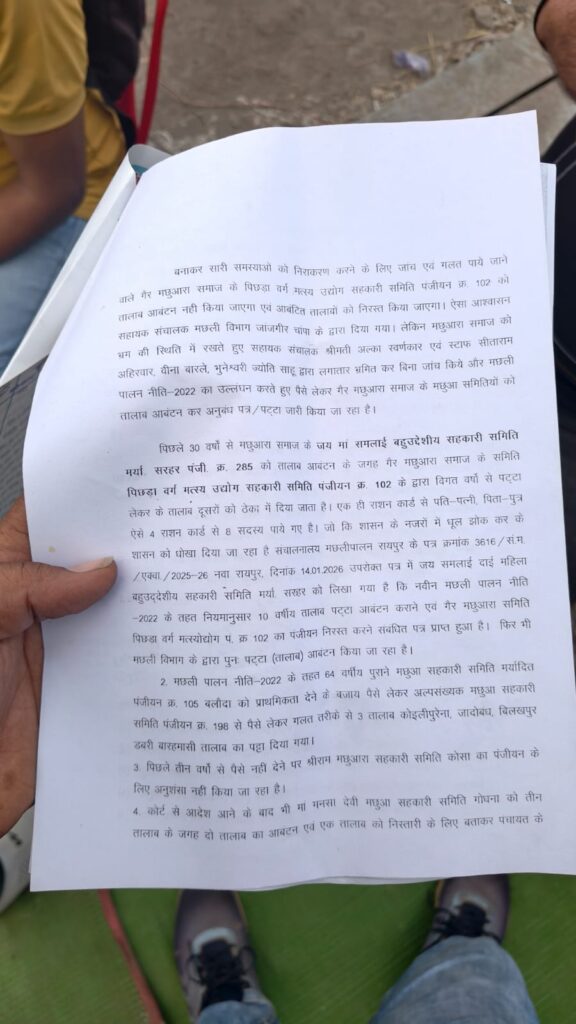 बनाकर सारी समस्याओं को निराकरण करने के लिए जांच एवं गलत पाये जाने
वाले गैर मछुआरा समाज के पिछडा वर्ग मत्स्य उद्योग सहकारी समिति पंजीयन क्र. 102 को
तालाब आबंटन नही किया जाएगा एवं आबंटित तालावों को निरस्त किया जाएगा। ऐसा आश्वासन
सहायक संचालक मछली विभाग जांजगीर चांपा के द्वारा दिया गया। लेकिन मछुआरा समाज को
भ्रम की स्थिति में रखते हुए सहायक संचालक श्रीमती अल्का स्वर्णकार एवं स्टाफ सीताराम
अहिरवार, वीना बारले, भुनेश्वरी ज्योति साहू द्वारा लगातार भ्रमित कर बिना जांच किये और मछली
पालन नीति–2022 का उल्लंघन करते हुए पैसे लेकर गैर मछुआरा समाज के मछुआ समितियों को
तालाब आबंटन कर अनुबंध पत्र/पट्टा जारी किया जा रहा है।
पिछले 30 वर्षो से मछुआरा समाज के जय मां समलाई बहुउद्देशीय सहकारी समिति
मर्या. सरहर पंजी. क्र. 285 को तालाब आबंटन के जगह गैर मछुआरा समाज के समिति
पिछड़ा वर्ग मत्स्य उद्योग सहकारी समिति पंजीयन क्र. 102 के द्वारा विगत वर्षो से पट्टा
लेकर के तालाब दूसरों को ठेका में दिया जाता है। एक ही राशन कार्ड से पति-पत्नी, पिता-पुत्र
ऐसे 4 राशन कार्ड से 8 सदस्य पाये गए है। जो कि शासन के नजरों में धूल झोक कर के
शासन को धोखा दिया जा रहा है संचालनालय मछलीपालन रायपुर के पत्र क्रमांक 3616/सं.म.
/एक्वा./2025-26 नवा रायपुर, दिनांक 14.01.2026 उपरोक्त पत्र में जय समलाई दाई महिला
बहुउद्देशीय सहकारी समिति मर्या. सरहर को लिखा गया है कि नवीन मछली पालन नीति
-2022 के तहत नियमानुसार 10 वर्षीय तालाब पट्टा आबंटन कराने एवं गैर मछुआरा समिति
पिछडा वर्ग मत्स्योद्योग पं. क्र 102 का पंजीयन निरस्त करने संबंधित पत्र प्राप्त हुआ है। फिर भी
मछली विभाग के द्वारा पुनः पट्टा (तालाब) आबंटन किया जा रहा है।
2. मछली पालन नीति–2022 के तहत 64 वर्षीय पुराने मछुआ सहकारी समिति मर्यादित
पंजीयन क्र. 105 बलौदा को प्राथमिकता देने के बजाय पैसे लेकर अल्पसंख्यक मछुआ सहकारी
समिति पंजीयन क्र. 198 से पैसे लेकर गलत तरीके से 3 तालाब कोइलीपुरेना, जादोबंध, बिलखपुर
डबरी बारहमासी तालाब का पट्टा दिया गया।
3. पिछले तीन वर्षो से पैसे नहीं देने पर श्रीराम मछुआरा सहकारी समिति कोसा का पंजीयन के
लिए अनुशंसा नहीं किया जा रहा है।
4. कोर्ट से आदेश आने के बाद भी मां मनसा देवी मछुआ सहकारी समिति गोधना को तीन
तालाब के जगह दो तालाब का आबंटन एवं एक तालाब को निस्तारी के लिए बताकर पंचायत के